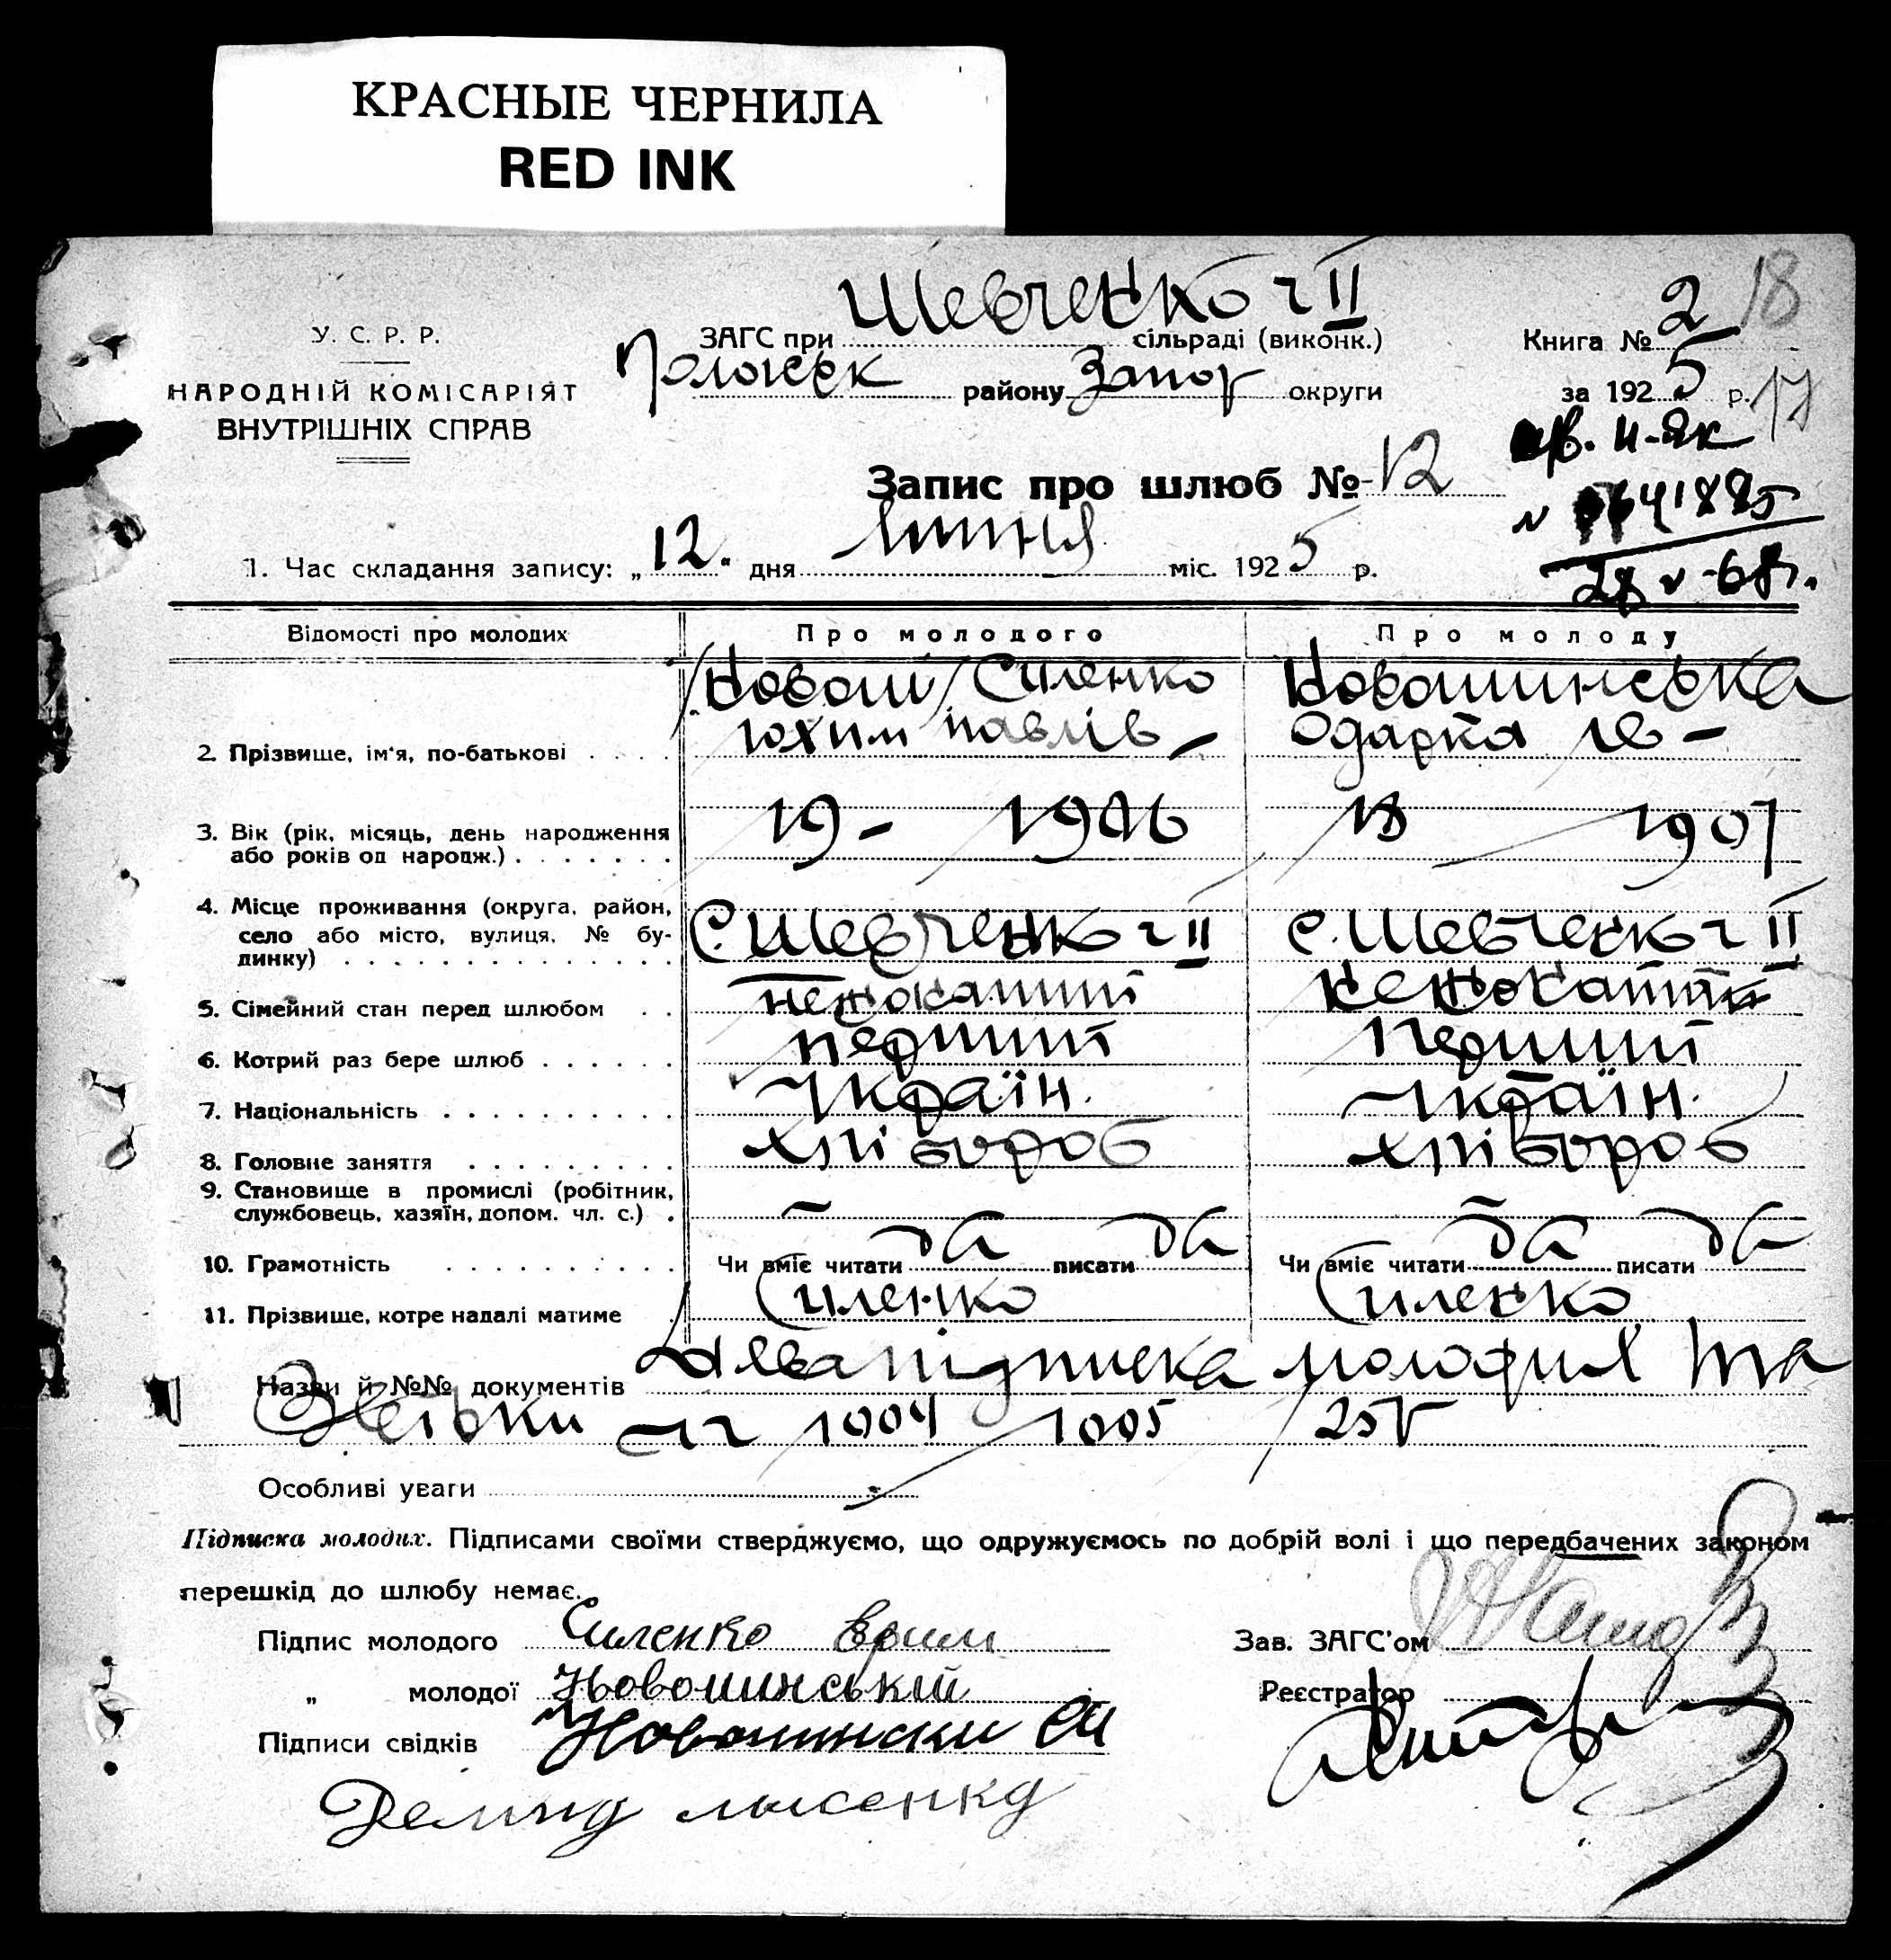 КРАСНЫЕ ЧЕРНИЛА
RED INK
У. С. Р. Р.
НАРОДНІЙ КОМІСАРІЯТ
ВНУТРІШНІХ СПРАВ
ЗАГС при Шевченко II сільраді (виконк.)
район у Запор округи
Книга № 2 18
за 1925 р. 17
Запис про шлюб № 12
28 V-68г.
1. Час складання запису: „12" дня липня міс. 1925 р.
Відомості про молодих Про молодого Про молоду
2. Прізвище, ім'я, по-батькові Силенко Юхим Павлів Новошинська Одарка
3. Вік (рік, місяць, день народження або років од народж.) 19 - 1906 18 1907
4. Місце проживання (округа, район, село або місто, вулиця, № будинку) с. Шевченко II с. Шевченко II
5. Сімейний стан перед шлюбом нежонатий нежонатий
6. Котрий раз бере шлюб перший перший
7. Національність Україн. Україн.
8. Головне заняття хлібороб хлібороб
9. Становище в промислі (робітник, службовець, хазяїн, допом. чл. с.) - -
10. Грамотність Чи вміє читати да писати да Чи вміє читати да писати да
11. Прізвище, котре надалі матиме Силенко Силенко
Назви й №№ документів підписка молодих та
1004 1005
Особливі уваги
Підписка молодих. Підписами своїми стверджуємо, що одружуємось по добрій волі і що передбачених законом
перешкід до шлюбу немає.
Підпис молодого Силенко Ефим
Зав. ЗАГС'ом
„ молодої Новошинській
Реєстратор
Підписи свідків Новошински
Демид лисенко